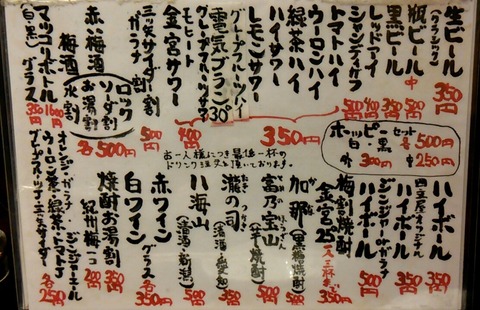 生ビール
(クラシック)
350円
瓶ビール 中 500円
黒ビール 350円
レッドアイ 400円
シャンディガフ 500円
トマトハイ
ウーロンハイ
緑茶ハイ
ハイサワー
レモンサワー
グレープフルーツハイ
350円
電気ブラン30°
グレープフルーツサワー
モヒート
400円
金宮サワー
三ツ矢サイダー割
ガラナ割
500円
赤い梅酒
梅酒
ロック
ソーダ割
水割
お湯割
各500円
マッコリ ボトル 1600円
(白・黒) グラス 350円
ホッピー セット
白・黒 各500円
外 300円 中 250円
お一人様につき最低一杯の
ドリンク注文と頂いております。
ハイボール 350円
ハイボール
ジンジャーorガラナ
ハイボール 500円
梅割焼酎
金宮25°
一人三杯まで
350円
加那(黒糖焼酎) 500円
富乃宝山
(芋焼酎) 500円
瀧の司
八海山
(清酒・新潟) 500円
赤ワイン
白ワイン
グラス
各350円
焼酎お湯割 350円
紀州梅一コ 200円
オレンジ・ガラナ・ジンジャーエール
ウーロン茶・緑茶・トマトJ
グレープフルーツJ・三ツ矢サイダー
各250円